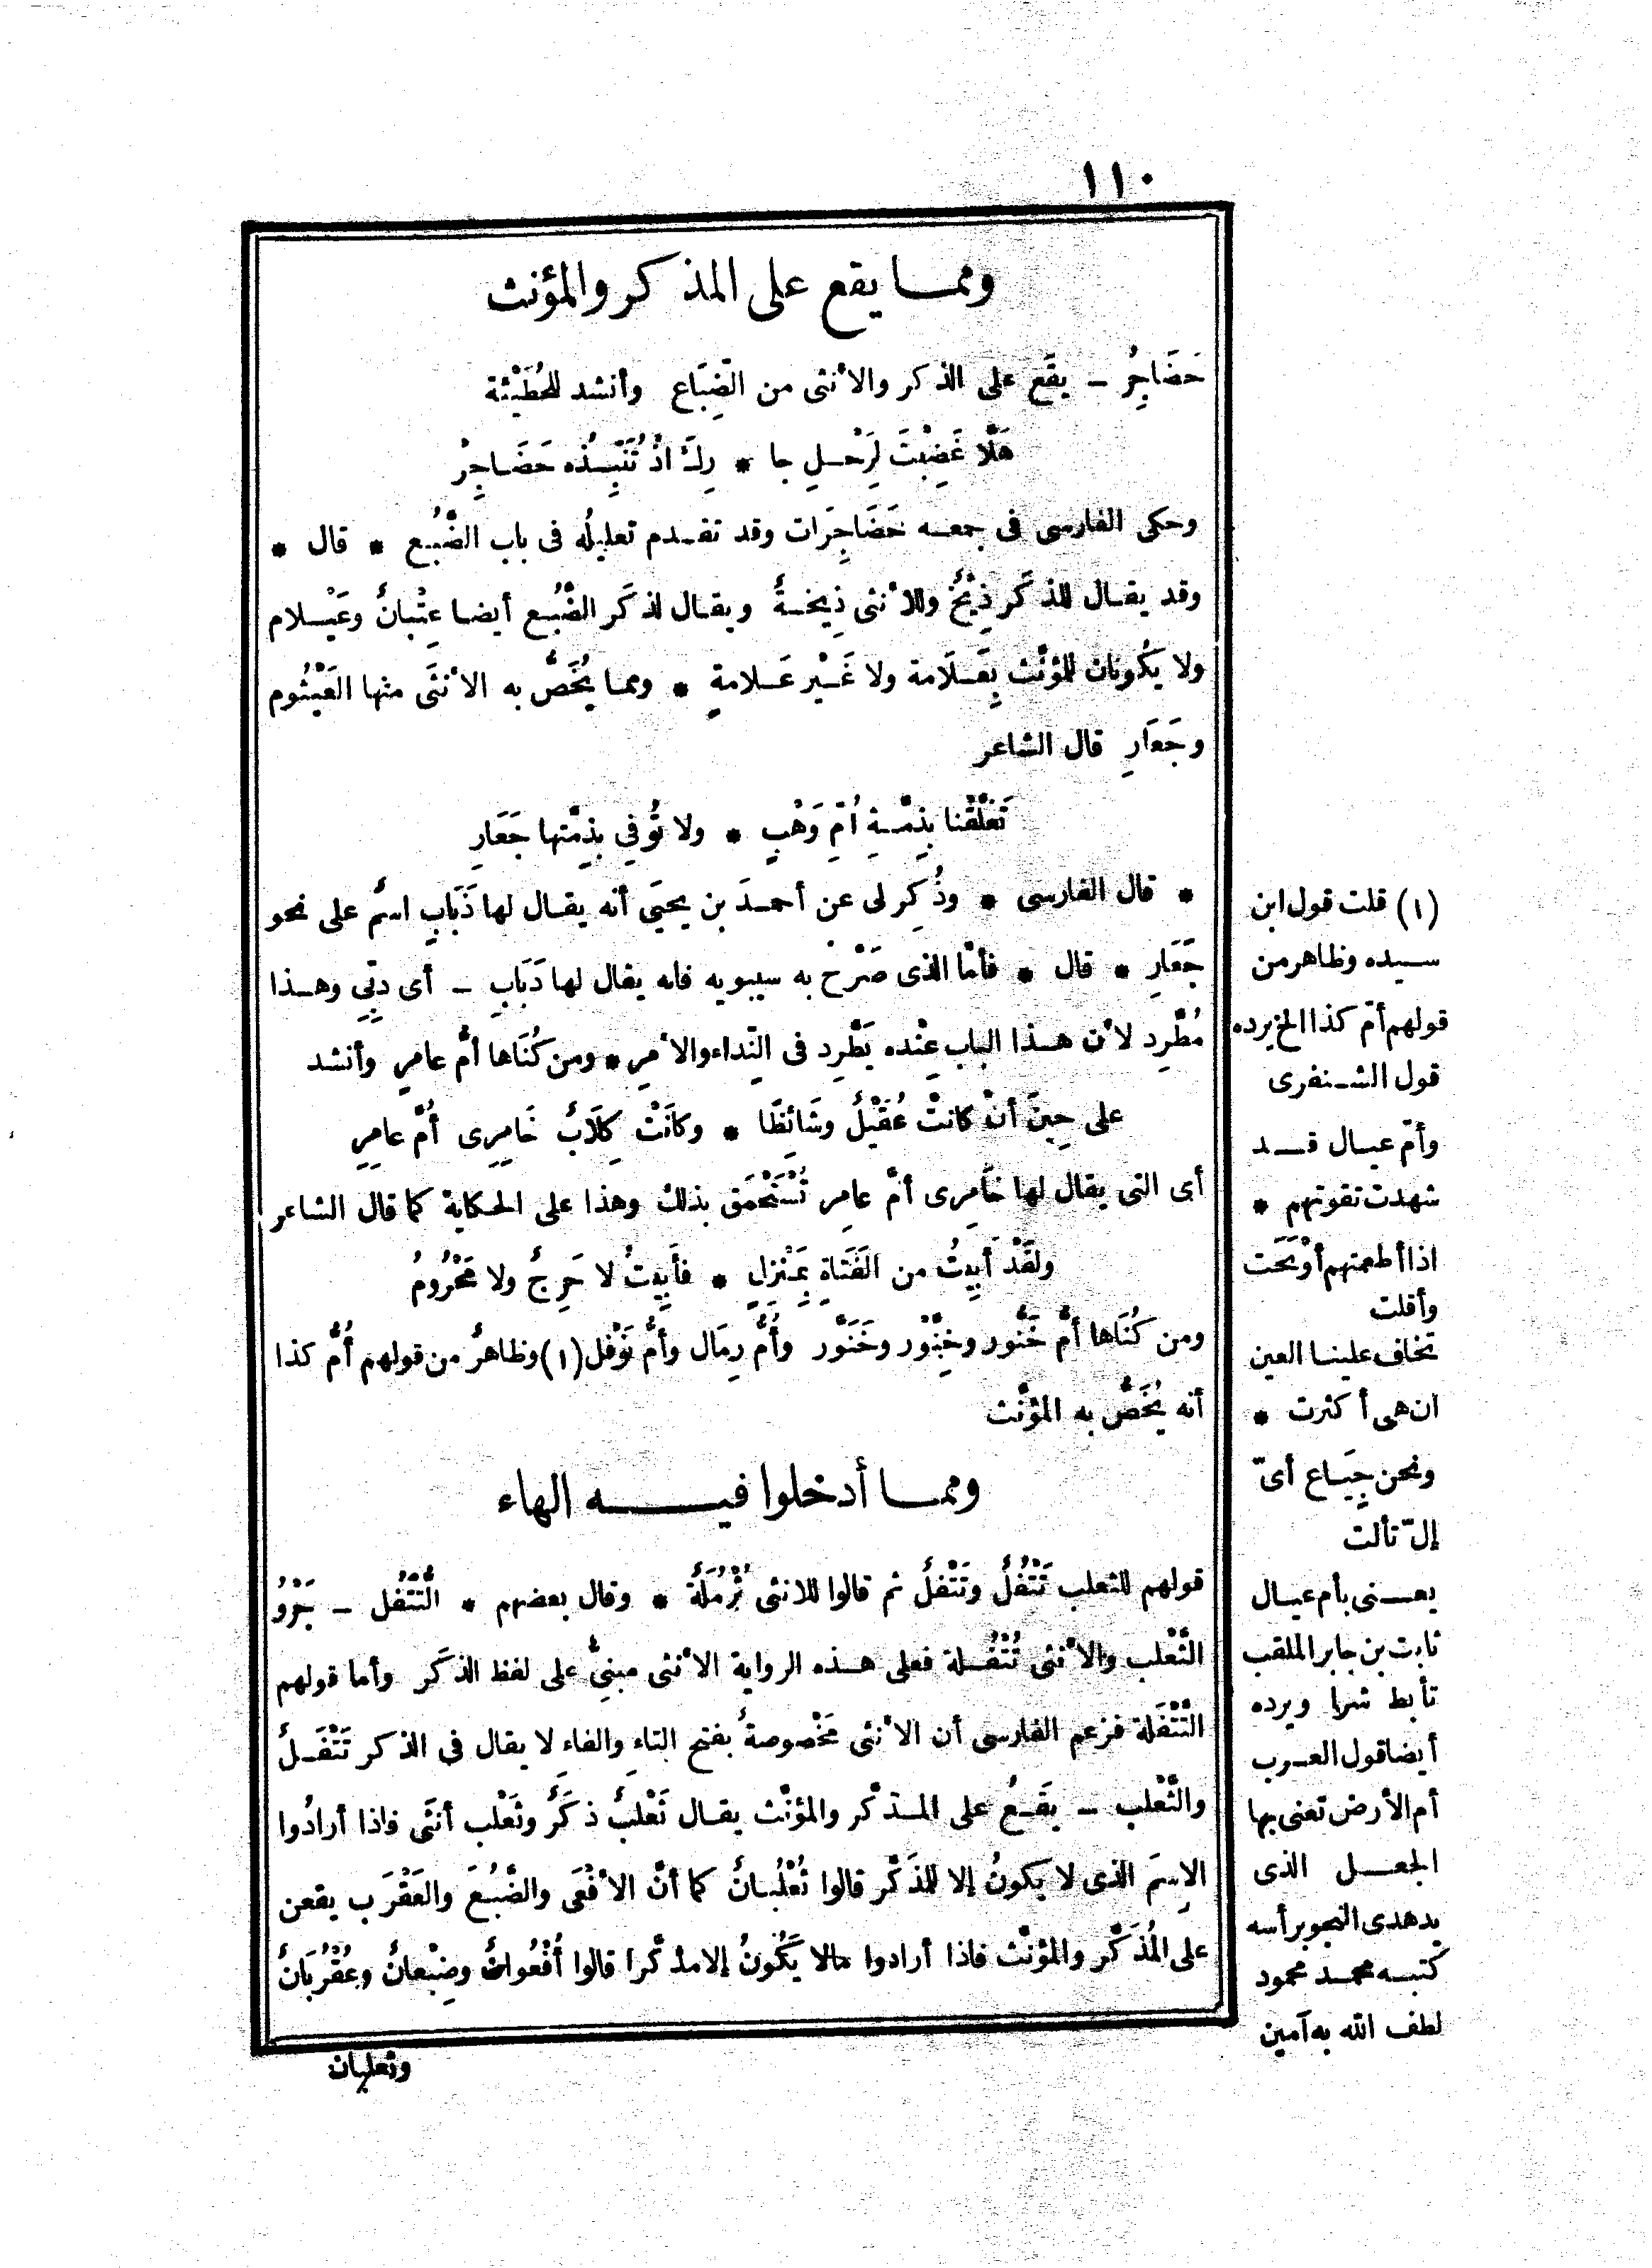 ١١٠
ومما يقع على المذكر والمؤنث
حَضَاجِرُ – يقَع على الذكر والأنثى من الضِّبَاع وأنشد للحُطَيْئة
هَلَّا غَضِبْتَ لِرَحْلِ جا * رِكَ اذْ تُنَبِّذُه حَضَاجِرْ
وحكى الفارسى فى جمعه حَضَاجِرَات وقد تقدم تعليلُه فى باب الضَّبُع * قال *
وقد يقال للذكَر ذِيْخٌ وللأنثى ذِيخةٌ ويقال لذكَر الضَّبُع أيضا عِتْبانٌ وعَيْلام
ولا يكُونان للمؤنَّث بِعَلَامة ولا غَيْر عَلامةٍ * ومما يُخَصُّ به الأنثَى منها العَيْثُوم
وجَعَارِ قال الشاعر
تَعَلَّقْنا بِذِمَّةِ اُمِّ وَهْبٍ * ولا تُوفِى بذِمَّتها جَعَارِ
* قال الفارسى * وذُكِر لى عن أحمدَ بن يحيَى أنه يقال لها ذَبَابِ اسمٌ على نحو
جَعَارِ * قال * فأمَّا الذى صَرَّح به سيبويه فانه يقال لها دَبَابِ – أى دبِّى وهذا
مُطَّرِد لأن هذا الباب عِنْده يَطَّرِد فى النِّداء والأمرِ * ومن كُنَاها أمُّ عامرٍ وأنشد
على حِينَ أنْ كانتْ عُقَيْلٌ وشَائِظًا * وكانَتْ كِلَابٌ خَامِرِى أُمَّ عامِرِ
أى التى يقال لها خَامِرى أمَّ عامِر تُسْتَحْمَق بذلك وهذا على الحكاية كما قال الشاعر
ولَقَدْ أَبِيتُ من الفَتَاةِ بِمَنْزِلٍ * فأَبِيتُ لا حَرِجٌ ولا مَحْرُومُ
ومن كُنَاها أمُّ خَنُّور وخِنَّوْر وخَنَوَّر وأُمُّ رِمَال وأمُّ نَوْفل (١) وظاهرٌ من قولهم أُمُّ كذا
أنه يُخَصُّ به المؤنَّث
ومما أدخلوا فيه الهاء
قولهم للثعلب تَتْفُلٌ وتَتْفلٌ ثم قالوا للانثى ثُرْمُلَةٌ * وقال بعضهم * التُّتْفُل – جَرْوُ
الثَّعْلب والأنثى تُتْفُلة فعلى هذه الرواية الأنثى مبنىٌّ على لفظ الذكَر وأما قولهم
التَّتْفَلة فزعم الفارسى أن الأنثى مَخْصوصةٌ بفتح التاءِ والفاءِ لا يقال فى الذكر تَتْفَلٌ
والثَّعْلب – يقَعُ على المذكَّر والمؤنَّث يقال ثَعْلبٌ ذكَرٌ وثَعْلب أنثَى فاذا أرادُوا
الاِسمَ الذى لا يكونُ إلا للمذكَّر قالوا ثُعْلُبانٌ كما أنَّ الأفْعَى والضَّبُعَ والعَقْرَب يقعن
على المُذَكَّر والمؤنَّث فاذا أرادوا مالا يَكُونُ إلا مذكَّرا قالوا أُفْعُوانٌ وضِبْعانٌ وعُقْرُبَانٌ
وثعلبان
(١) قلت قول ابن
سيده وظاهر من
قولهم أمّ كذا الخ يرده
قول الشنفرى
وأمّ عيال قد
شهدت تقوتهم *
اذا أطعمتهم أوْتَحَت
وأقلت
تخاف علينا العين
ان هى أكثرت *
ونحن جِيَاع أىّ
إلّ تألت
يعنى بأم عيال
ثابت بن جابر الملقب
تأبط شرا ويرده
أيضا قول العرب
أم الأرض تعنى بها
الجعل الذى
يدهدى النجو برأسه
كتبه محمد محمود
لطف الله به آمين